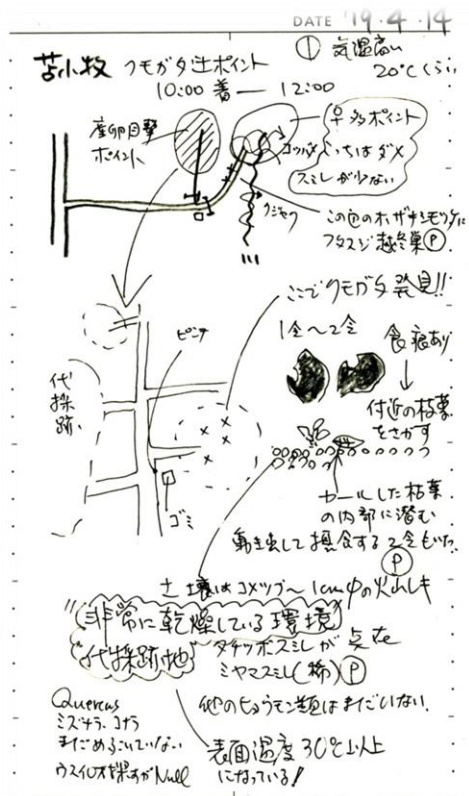 DATE '19・4・14
苫小牧 クモガタ辻ポイント
① 気温高い
20℃くらい
10:00 着 — 12:00
産卵目撃
ポイント
早多ポイント
コツバメ
こっちはダメ
スミレが少ない
クジャク
この色のホザキシモツケに
フタスジ越冬巣 Ⓟ
ここでクモガタ発見!!
ピンチ
1令〜2令
食痕あり
伐採跡
付近の枯葉
をさがす
カールした枯葉
の内部に潜む
ゴミ
動き出して摂食する2令もいた
Ⓟ
土壌はコメツブ〜1cm中の火山レキ
"非常に乾燥している環境"
"伐採跡地"
タチツボスミレが点在
ミヤマスミレ(稀) Ⓟ
他のヒョウモン類はまだいない.
Quercus
ミズナラ.コナラ
まだめぶいていない
ウスイロオ探すがNull
表面温度30℃以上
になっている!